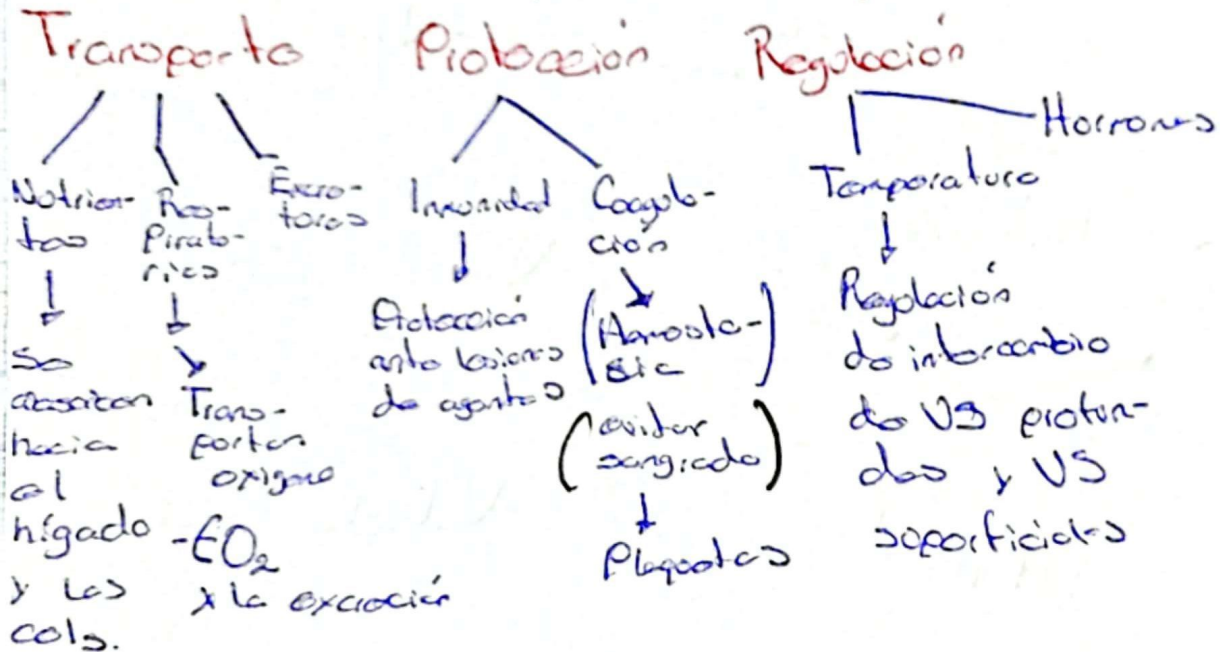 Transporte
Nutrien-
tes
Se
necesitan
hacia
el
hígado
y las
cels.
Res-
pirato-
rios
Trans-
portan
oxígeno
-CO₂
x la excreción
Excre-
tores
Protección
Inmunidad
Protección
ante lesiones
de agentes
Coagula-
ción
(Hemosta-
sia)
(evitar
sangrado)
Plaquetas
Regulación
Temperatura
Regulación
de intercambio
de VS profun-
dos y VS
superficiales
Hormonas